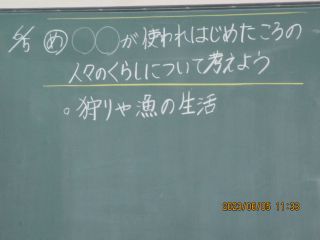 6/5 め ○○が使われはじめたころの
人々のくらしについて考えよう
。狩りや漁の生活
2023/06/05 11:33